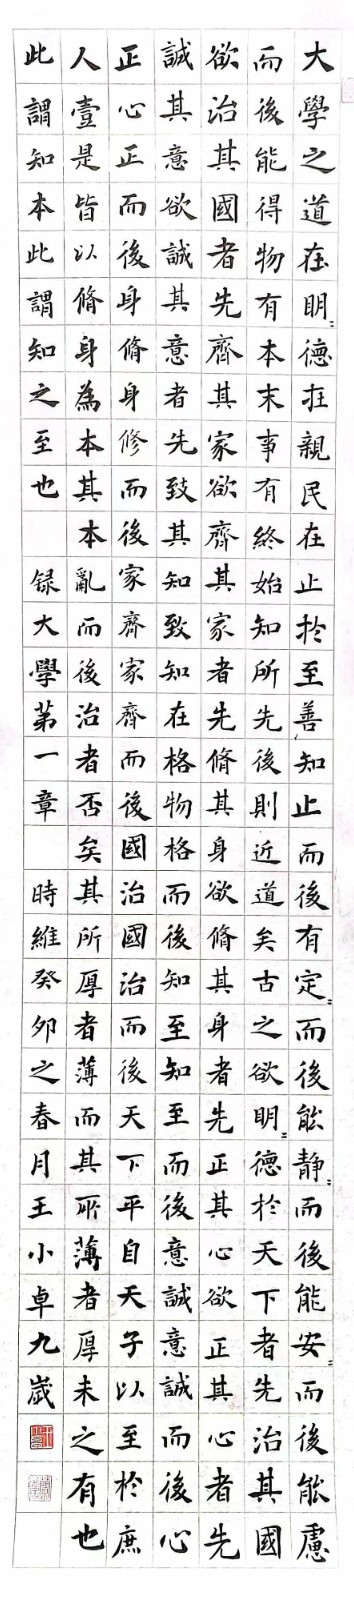 大學之道在明〻德在親民在止扵至善知止而後有定〻而後能静〻而後能安〻而後能慮
而後能得物有本末事有終始知所先後則近道矣古之欲明〻德於天下者先治其國
欲治其國者先齊其家欲齊其家者先脩其身欲脩其身者先正其心欲正其心者先
誠其意欲誠其意者先致其知致知在格物格而後知至知至而後意誠意誠而後心
正心正而後身脩身修而後家齊家齊而後國治國治而後天下平自天子以至於庶
人壹是皆以脩身為本其本亂而後治者否矣其所厚者薄而其所薄者厚未之有也
此謂知本此謂知之至也 録大學第一章 時維癸卯之春月王小卓九歲